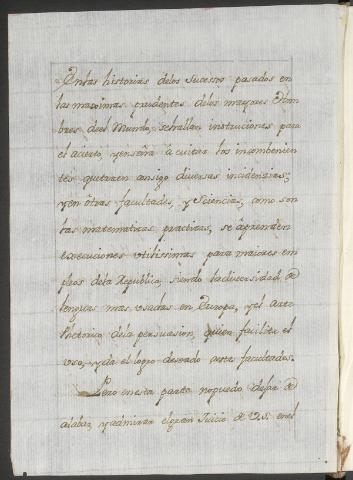 Enlas historias delos sucessos pasados en
las maximas prudentes delos mayores Hom
bres del Mundo, sehallan instruciones para
el acierto, yenseña à evitar los incombenien
tes quetraen consigo diversas incidencias;
yen otras facultades, y Sciencias, como son
las matematicas practicas, se aprenden
execuciones utilissimas para maiores em
pleos dela Republica, siendo ladiversidad de
lenguas mas usadas en Europa, yel arte
Rhetorica dela persuasion, quien facilita el
uso, yda el logro deseado aestas facultades.
Pero enesta parte nopuedo dejar de
alabar, yadmirar elgran Juicio de V.S. enel